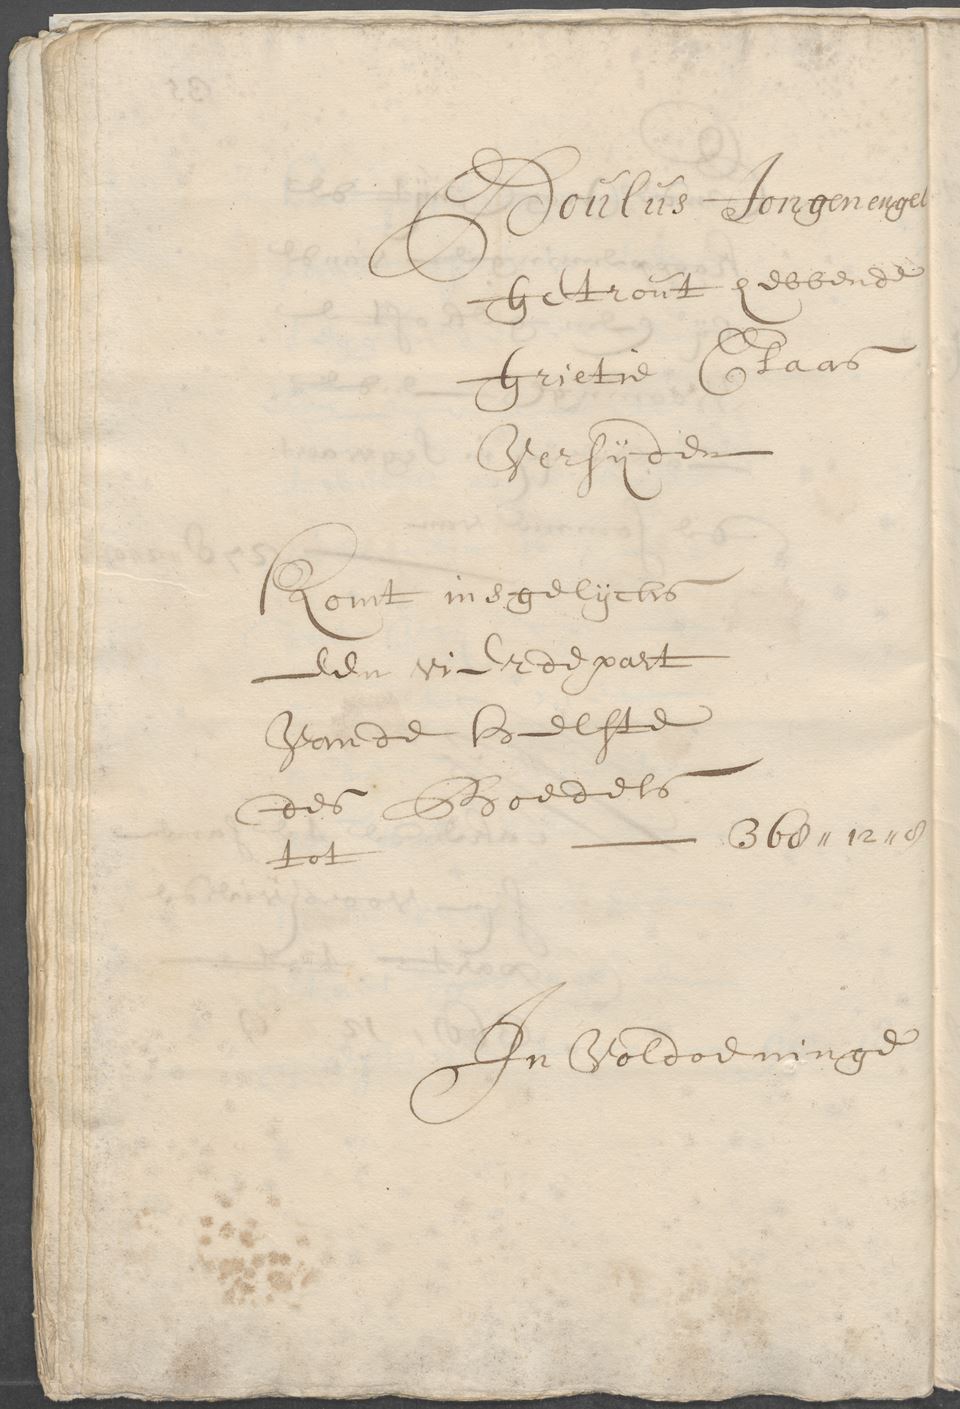 Poulus Jongenengel
getrout hebbende
grietie Claas
Versijden
Komt insgelijchs
een vierdepart
Vande helfte
des Boedels
tot — 368 " 12 " 8
In Voldoeninge